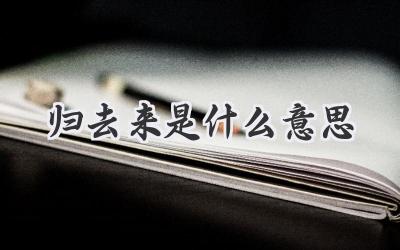 归去来是什么意思